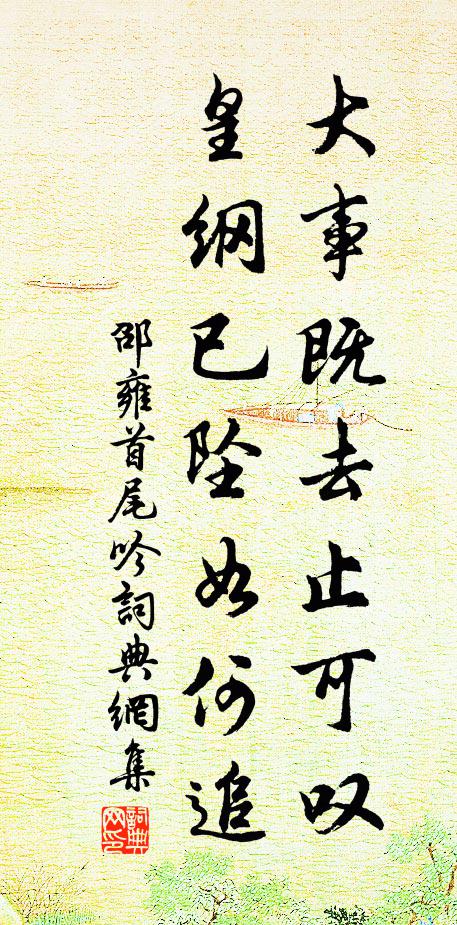 大事既去止可叹
皇纲已坠如何追
邵雍首尾吟詞典網集
詞典网印